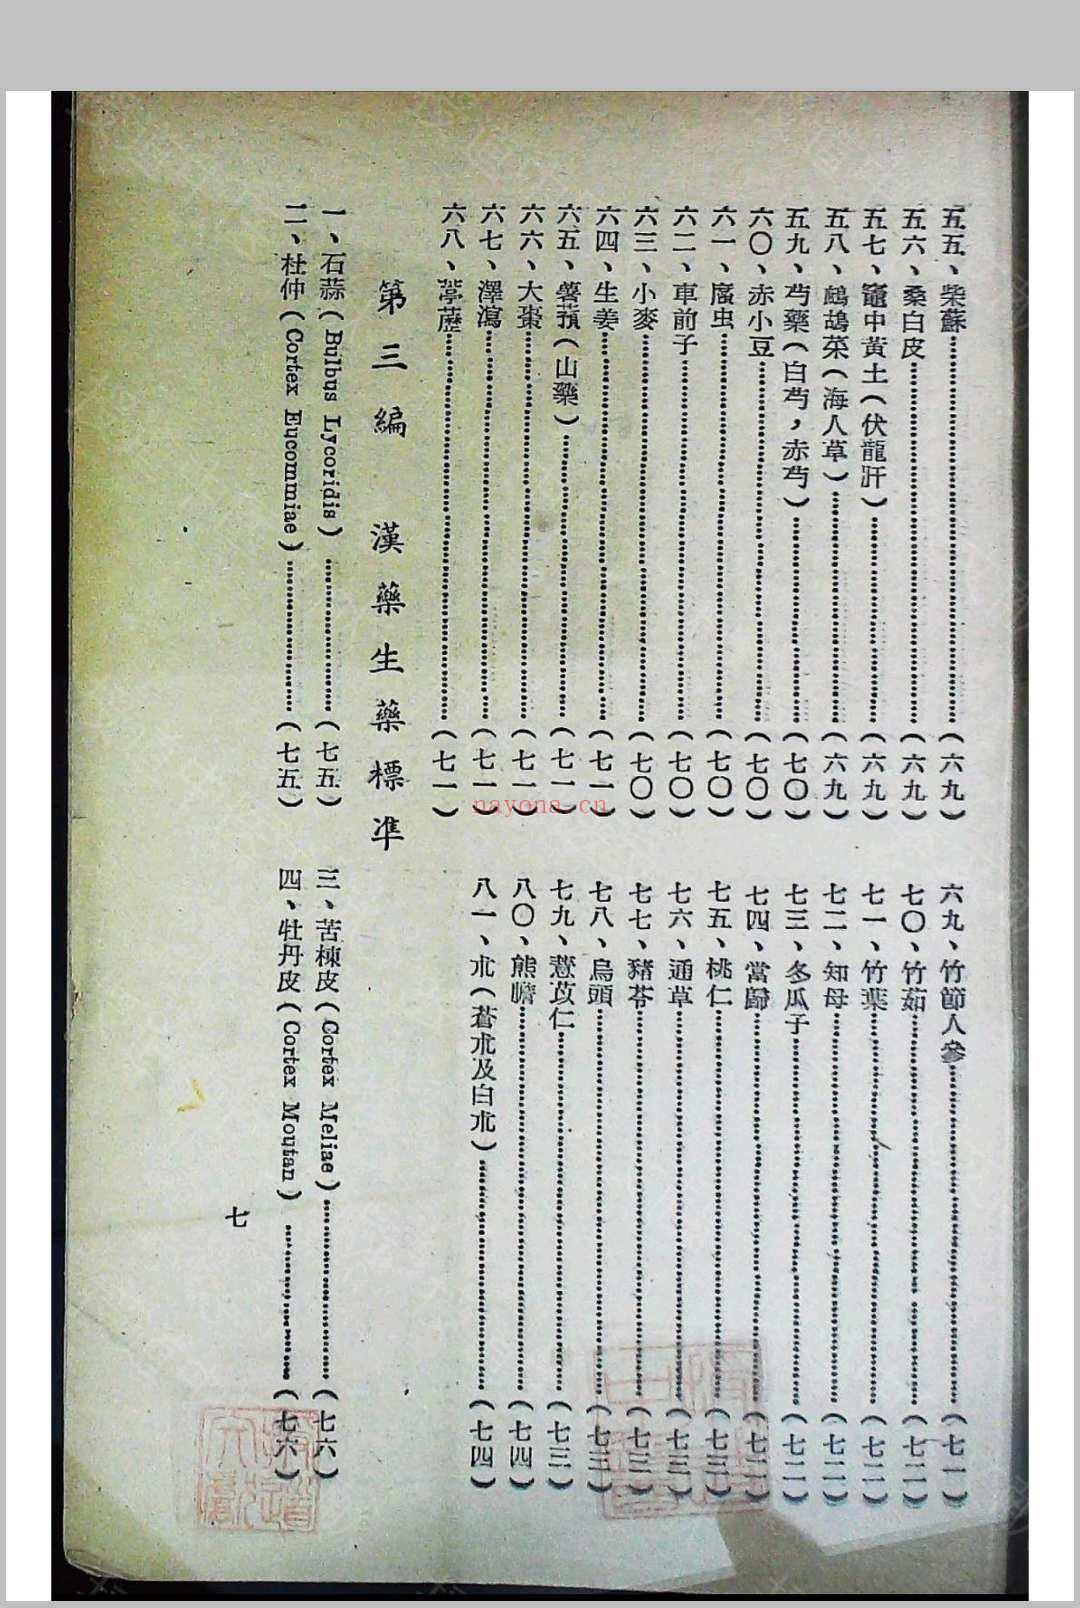 五五、柴蘇………(六九)
五六、桑白皮………(六九)
五七、竈中黃土(伏龍肝)………(六九)
五八、鷓鴣菜(海人草)………(六九)
五九、芍藥(白芍，赤芍)………(七〇)
六〇、赤小豆………(七〇)
六一、䗪虫………(七〇)
六二、車前子………(七〇)
六三、小麥………(七〇)
六四、生姜………(七一)
六五、薯蕷(山藥)………(七一)
六六、大棗………(七一)
六七、澤瀉………(七一)
六八、葶藶………(七一)
六九、竹節人參………(七一)
七〇、竹茹………(七二)
七一、竹葉………(七二)
七二、知母………(七二)
七三、冬瓜子………(七二)
七四、當歸………(七二)
七五、桃仁………(七三)
七六、通草………(七三)
七七、豬苓………(七三)
七八、烏頭………(七三)
七九、薏苡仁………(七三)
八〇、熊膽………(七四)
八一、朮(蒼朮及白朮)………(七四)
第三編　漢藥生藥標準
一、石蒜(Bulbus Lycoridis)………(七五)
二、杜仲(Cortex Eucommiae)………(七五)
三、苦楝皮(Cortex Meliae)………(七六)
四、牡丹皮(Cortex Moutan)………(七六)
七
nayona.cn